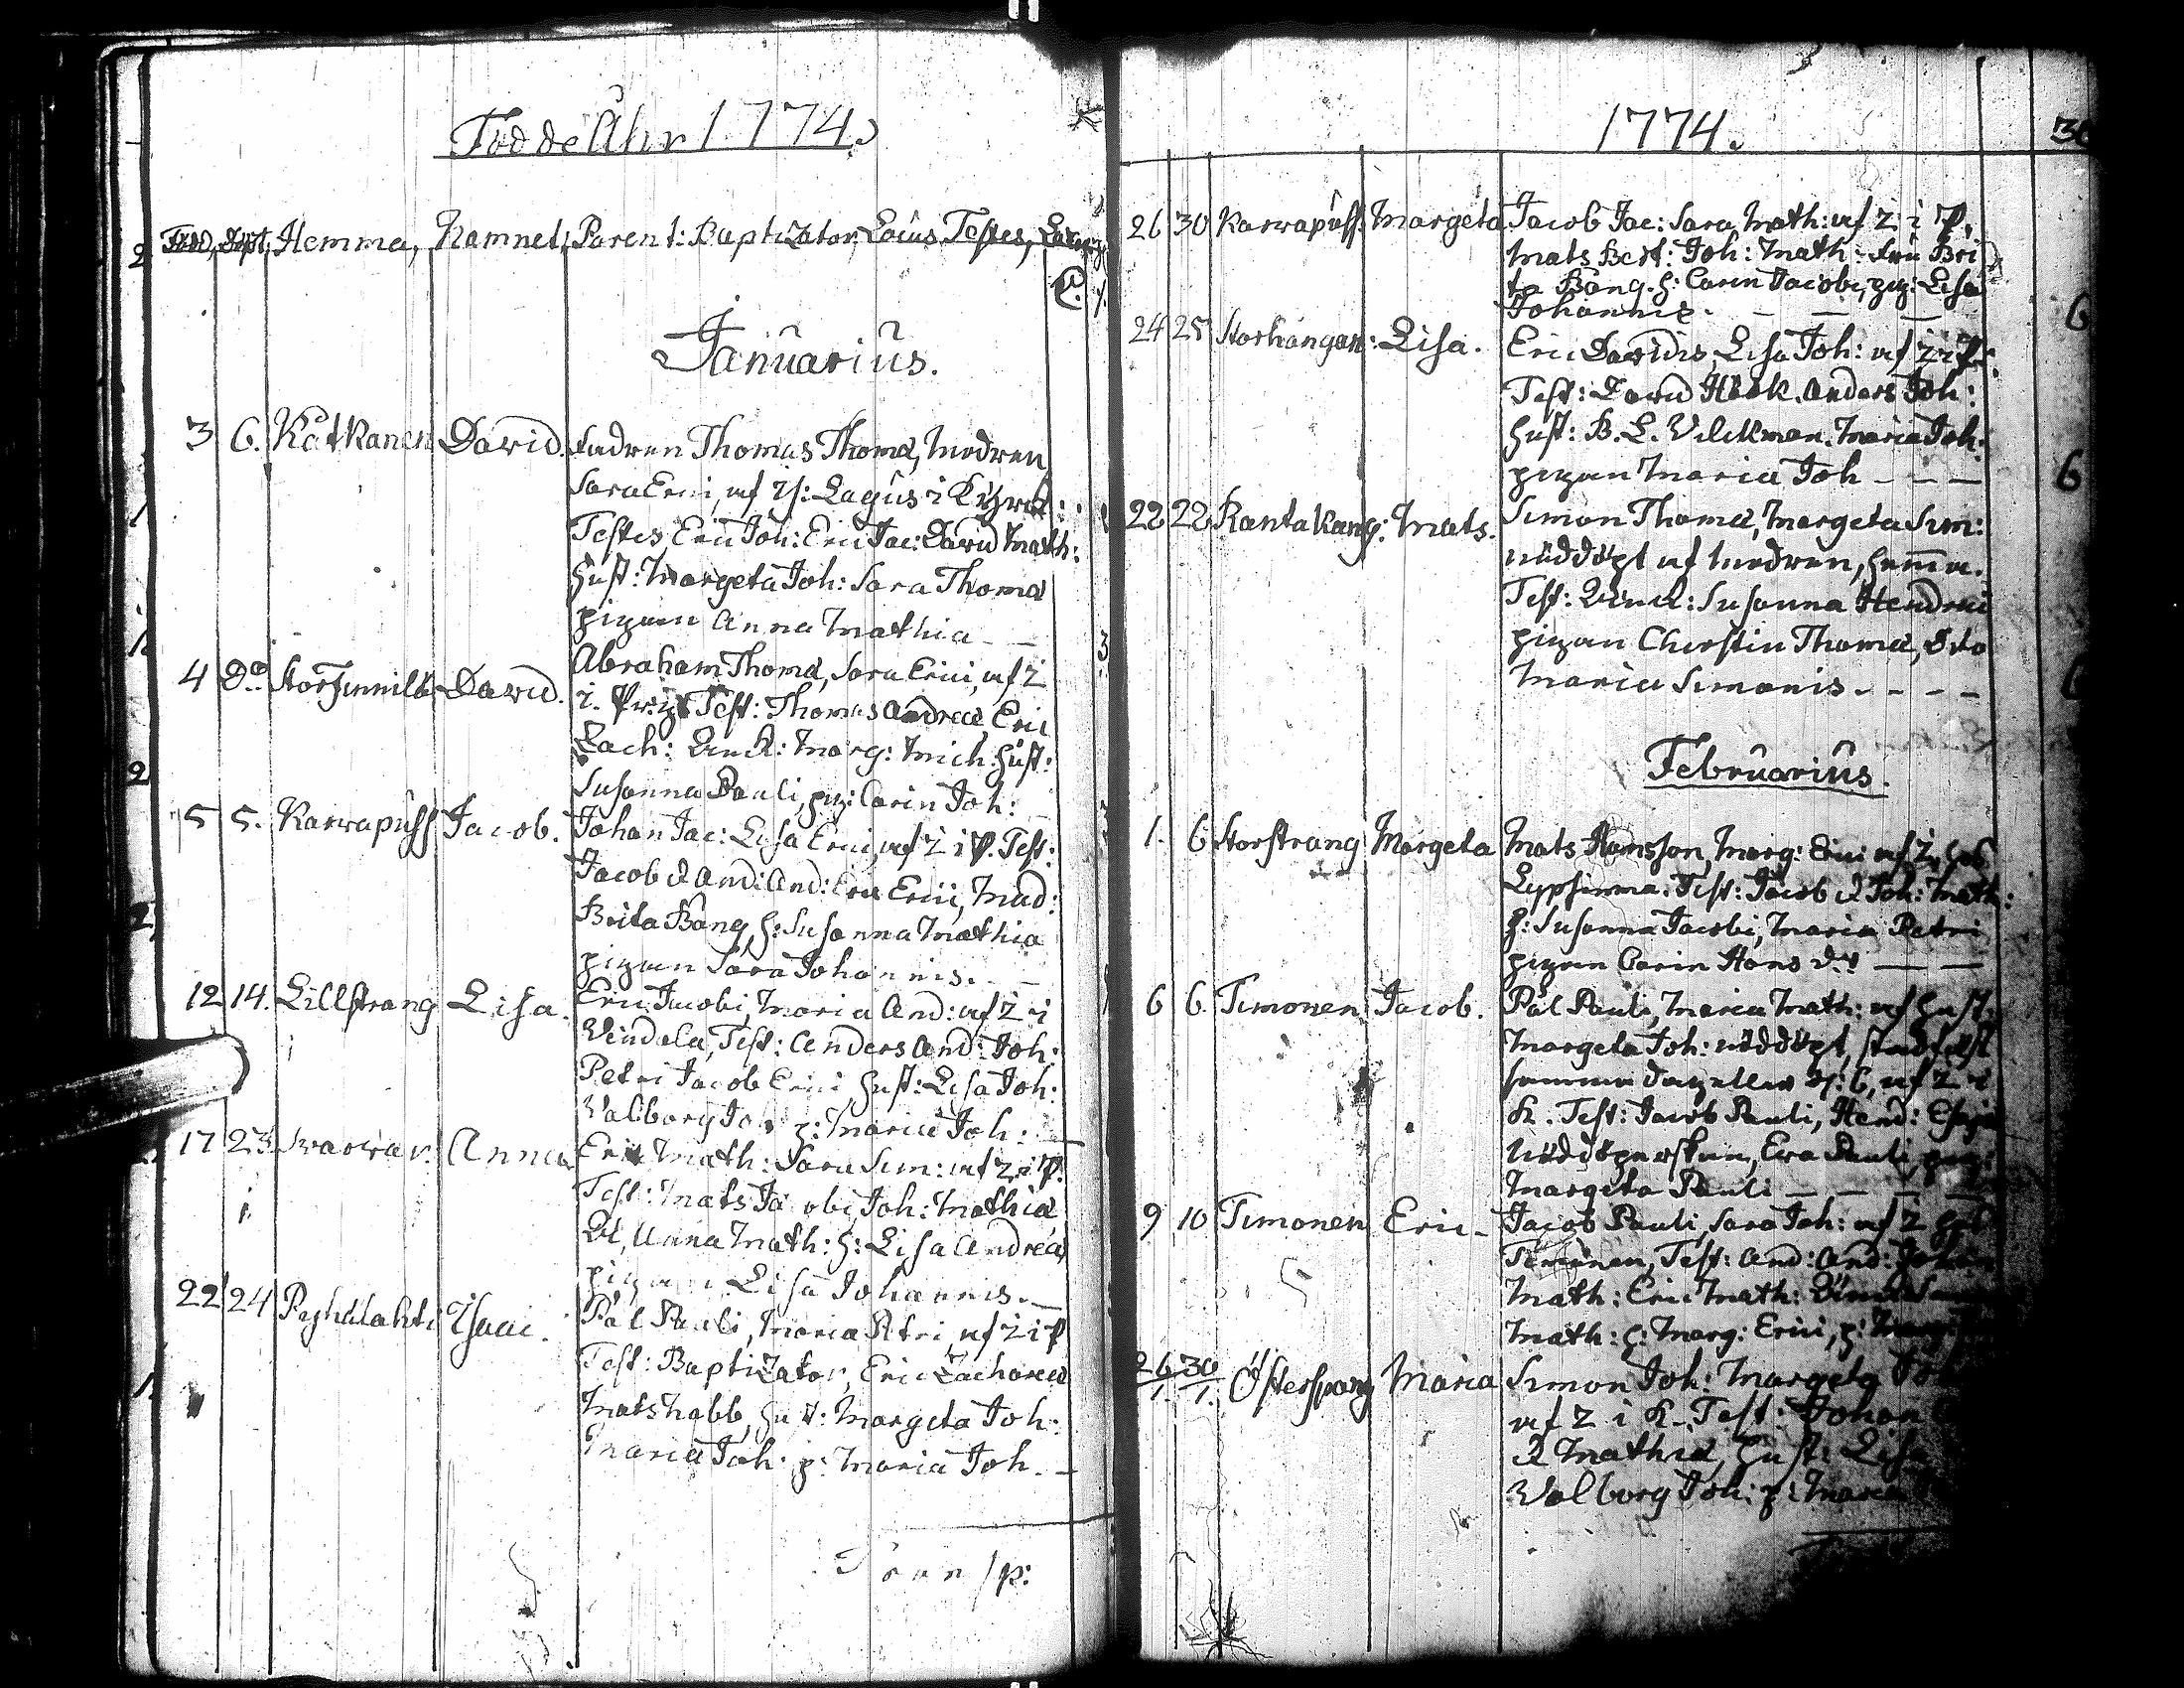 Föddе Åhr 1774.
Född, Döpt, Hemma, Namnet, Parent: Baptizator, Locus, Testes,
Januarius.
3 6. Kåtkanen David. fadren Thomas Thomæ, modren
Sara Erici, af H: Lagus i Kyrck:
Testes Eric Joh: Eric Jac: David Math:
hust: Margeta Joh: Sara Thomæ
pigan Anna Mathiæ
4 Do Storfinnila David. Abraham Thomæ, Sara Erici, af Z
i Test: Thomas Andreæ, Eric
Zach: Marg: Mich: hust:
Susanna Pauli, pig: Carin Joh:
5 5. Karvapuss Jacob. Johan Jac: Lisa Erici, af Z i P. Test:
Jacob & And: And: Eric Erici, Mad:
Brita Bång, h: Susanna Mathiæ
pigan Sara Johannis.
12 14. Lillstrang Lisa. Eric Jacobi, Maria And: af Z i
Vindala, Test: Anders And: Joh:
Petri Jacob Erici hust: Lisa Joh:
Valborg Joh p: Maria Joh:
17 23. Svarvar Anna Eric Math: Sara Sim: af Z i P.
Test: Mats Jacobi, Joh: Mathiæ
Anna Math: h: Lisa Andreæ,
pigan Lisa Johannis.
22 24 Pyhälahti Isaac. Pål Pauli, Maria Petri af Z i P
Test: Baptizator, Eric Zachariæ
Mats Nabb, hust: Margeta Joh:
Maria Joh: p: Maria Joh.
1774.
26 30 Karvapuss: Margeta Jacob Jac: Sara Math: af Z i P.
Mats Bert: Joh: Math: fru Bri
ta Bång. h: Carin Jacobi, pig: Lisa
Johannis.
24 25 Storhångan: Lisa. Eric Davidis, Lisa Joh: af Z i P.
Test: David Höök. Anders Joh:
hust: B. L. Maria Joh:
pigan Maria Joh
22 22 Rantakang: Mats. Simon Thomæ, Margeta Sim:
nöddöpt af modren, hemma.
Test: Susanna Hendrici
pigan Cherstin Thomæ, dito
Maria Simonis.
Februarius.
1. 6 Storstrang Margeta Mats Hansson, Marg: Erici af Z hos
Test: Jacob & Joh: Math:
h: Susanna Jacobi, Maria Petri
pigan Carin Hans dr
6 6. Timonen Jacob. Pål Pauli, Maria Math: af hust.
Margeta Joh: nöddöpt, stadfäst
samma dag af Z i
K. Test: Jacob Pauli, Hend:
Nöddöperskan, Eva Pauli, pig:
Margeta Pauli
9 10 Timonen Eric Jacob Pauli, Sara Joh: af Z
Timonen, Test: And: And: Johan
Math: Eric Math:
Math: h: Marg: Erici, p:
26/1. 30/1. Österspang Maria Simon Joh: Margeta
af Z i K. Test: Johan
& Mathiæ, hust: Lisa
Valborg Joh: p: Maria